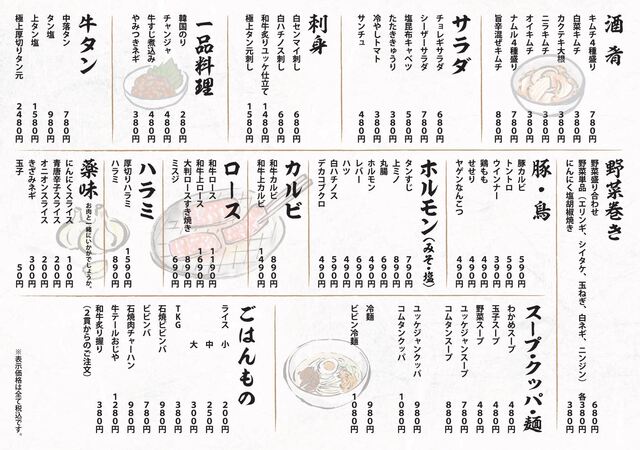 酒肴
キムチ4種盛り 780円
白菜キムチ 380円
カクテキ大根 380円
ニラキムチ 380円
オイキムチ 380円
ナムル4種盛り 780円
旨辛混ぜキムチ 880円
サラダ
チョレギサラダ 680円
シーザーサラダ 780円
塩昆布キャベツ 580円
たたききゅうり 380円
冷やしトマト 380円
サンチュ 480円
刺身
白センマイ刺し 680円
白ハチノス刺し 680円
和牛炙りユッケ仕立て
極上タン元刺し 1580円
一品料理
韓国のり 280円
チャンジャ 480円
牛すじ煮込み 480円
やみつきネギ 380円
牛タン
中落タン 780円
タン塩 980円
上タン塩 1580円
極上厚切りタン元 2480円
野菜巻き
野菜盛り合わせ 680円
野菜単品(エリンギ、シイタケ、玉ねぎ、白ネギ、ニンジン) 各380円
にんにく塩胡椒焼き 380円
豚・鳥
豚カルビ 590円
トントロ 590円
ウインナー 390円
鶏もも 490円
せせり 490円
ヤゲンなんこつ 490円
ホルモン(みそ・塩)
タンすじ 790円
上ミノ 890円
丸腸 690円
ホルモン 490円
レバー 490円
ハツ 490円
白ハチノス 590円
デカコプクロ 490円
カルビ
和牛カルビ 890円
和牛上カルビ 1490円
ロース
和牛ロース 1190円
和牛上ロース 1690円
大判ロースすき焼き 890円
ミスジ 690円
ハラミ
厚切りハラミ 1590円
ハラミ 890円
薬味 お肉と一緒にいかがでしょうか。
にんにくスライス 100円
青唐辛子スライス 200円
オニオンスライス 200円
きざみネギ 300円
玉子 50円
スープ・クッパ・麺
わかめスープ 480円
玉子スープ 480円
野菜スープ 480円
ユッケジャンスープ 780円
コムタンスープ 880円
ユッケジャンクッパ 980円
コムタンクッパ 1080円
冷麺 980円
ビビン冷麺 1080円
ごはんもの
ライス 小 200円
中 250円
大 300円
TKG 380円
石焼ビビンバ 980円
ビビンバ 780円
石焼肉チャーハン 980円
牛テールおじや 1280円
和牛炙り握り 380円
(2貫からのご注文)
※表示価格は全て税込です。